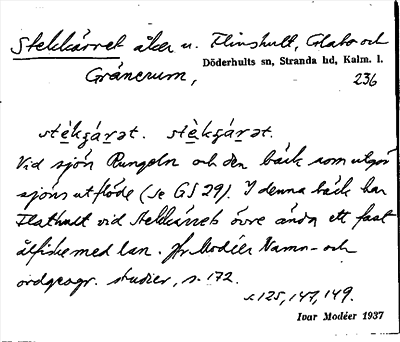 Stekkärret åker u. Flinshult, Glabo och
Döderhults sn, Stranda hd, Kalm. l.
Gränerum,
236
stèkɟárət. stèkɟárət.
Vid sjön Rungeln och den bäck som utgör
sjöns utflöde (se GS 29). I denna bäck har
Flathult vid Stekkärrets övre ända ett fast
ålfiske med lan. Jfr Modéer Namn- och
ordgeogr. studier, s. 172.
s. 125, 147, 149.
Ivar Modéer 1937